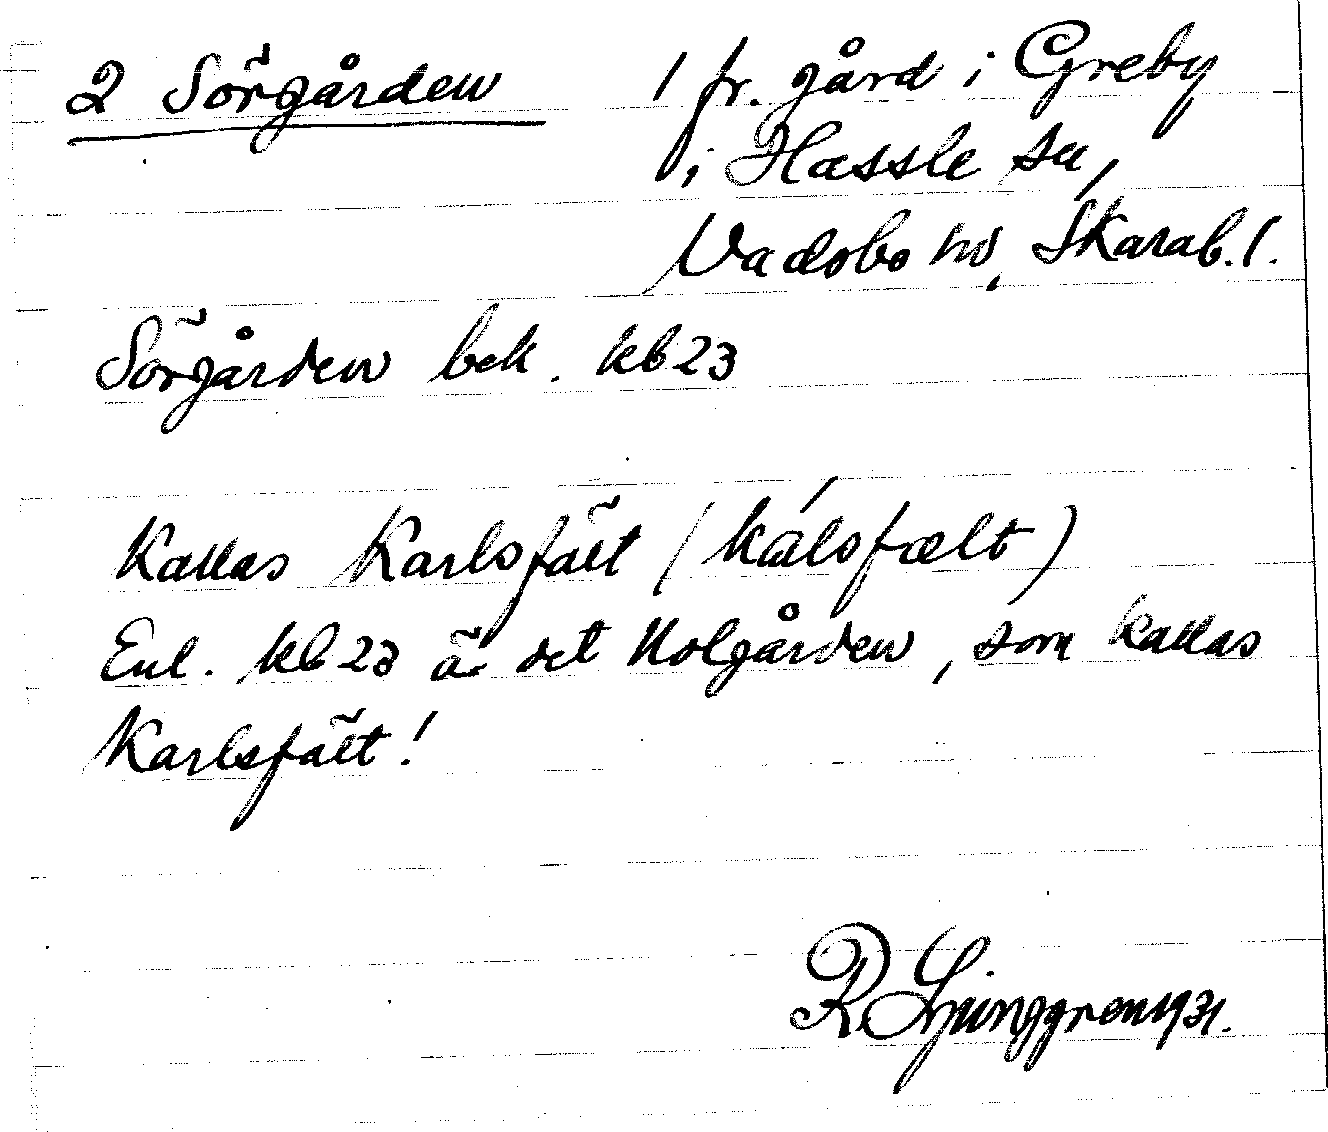 2 Sörgården
1 fr. gård i Greby
i Hassle sn,
Vadsbo hd, Skarab. l.
Sörgården bek. kb 23
Kallas Karlsfält (kálsfælt)
Enl. kb 23 är det Nolgården, som kallas
Karlsfält!
R. Ljunggren 1931.